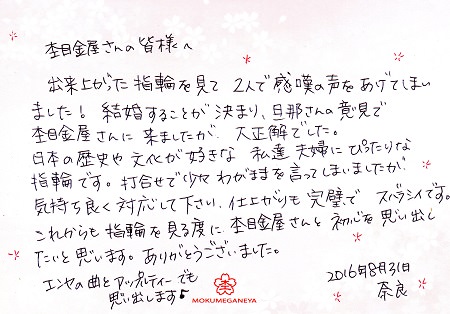 杢目金屋さんの皆様へ
出来上がった指輪を見て 2人で感嘆の声をあげてしまい
ました! 結婚することが決まり、旦那さんの意見で
杢目金屋さんに来ましたが、大正解でした。
日本の歴史や文化が好きな 私達夫婦にぴたりな
指輪です。打合せで少々わがままを言ってしまいましたが、
気持ち良く対応して下さい、仕上がりも完璧でスバラシイです。
これからも指輪を見る度に、杢目金屋さんと初心を思い出し
たいと思います。ありがとうございました。
エンヤの曲とアップルティーでも
思い出します♪
MOKUMEGANEYA
2016年8月31日
奈良